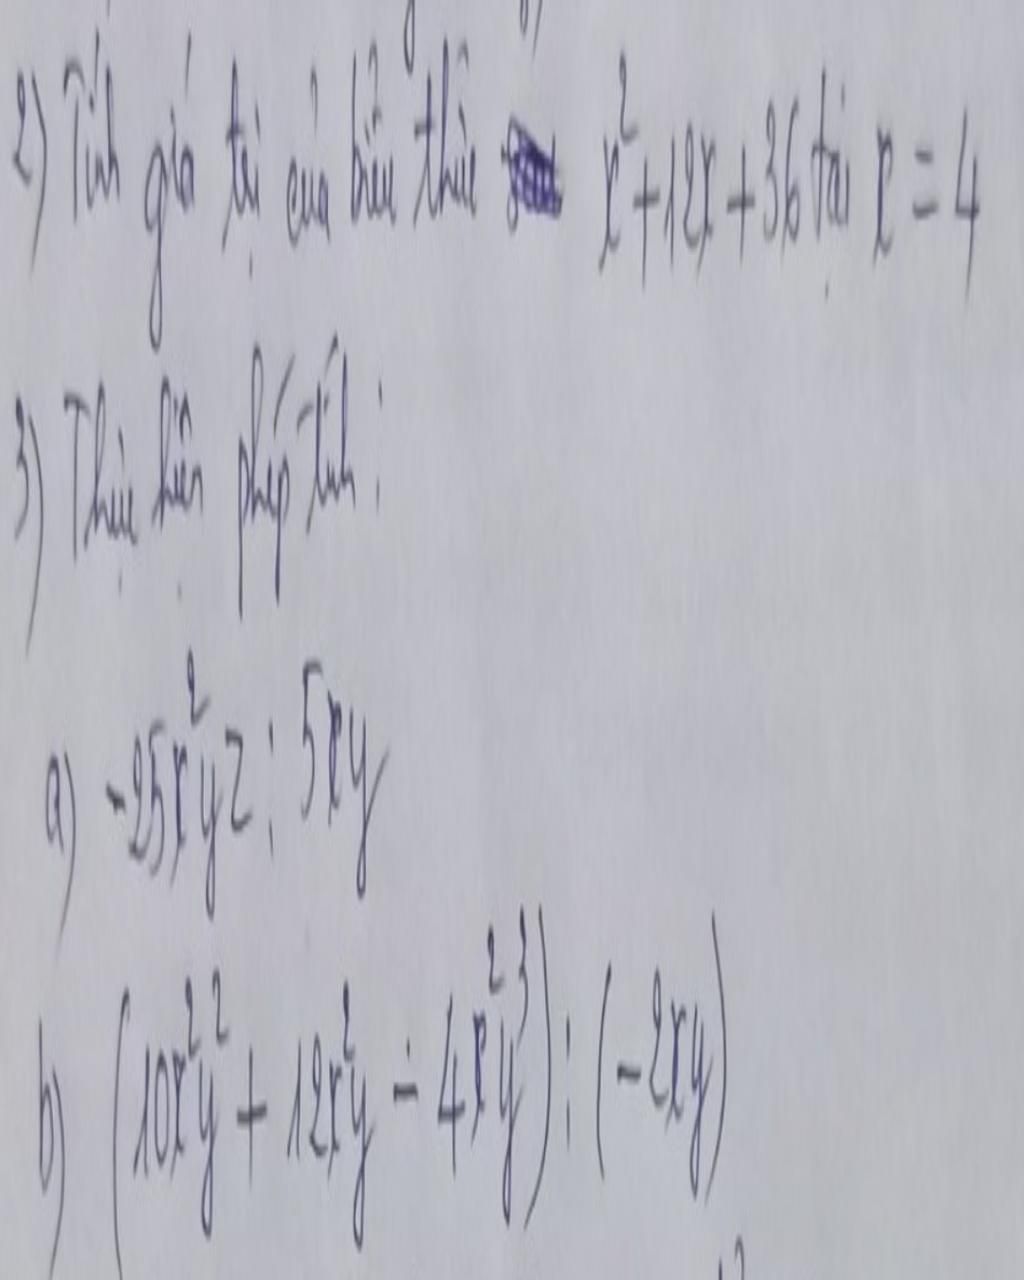 2) Tính giá trị của biểu thức x²+12x+36 tại x=4
3) Thực hiện phép tính:
a) -25x²yz : 5xy
b) (10x²y² + 12x²y - 4x²y³) : (-2xy)